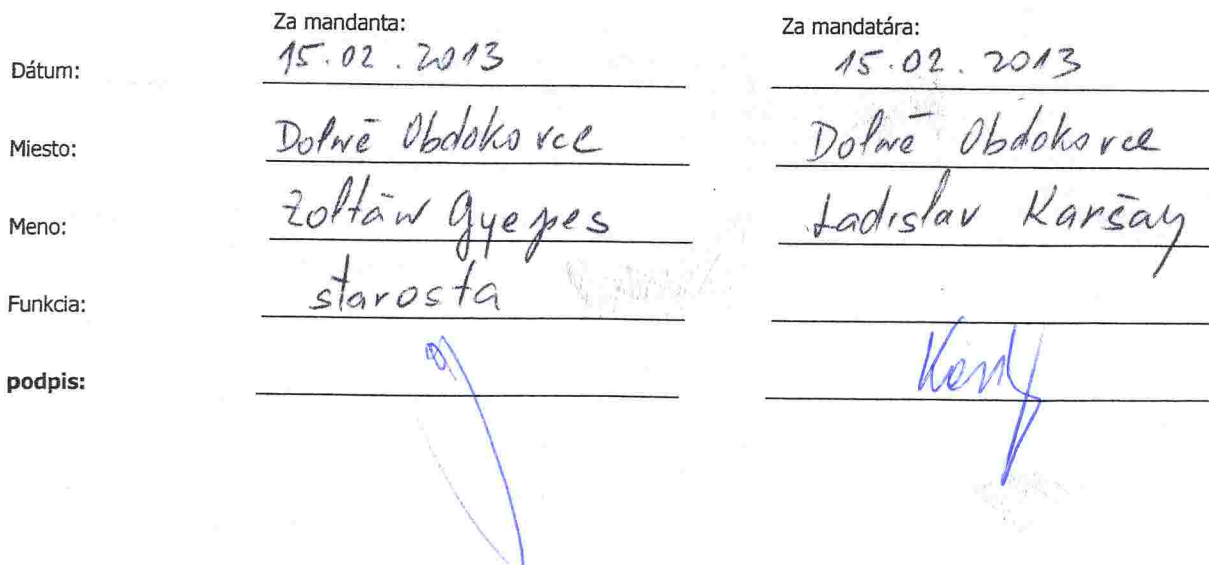 Za mandanta: Za mandatára:
Dátum: 15.02.2013 15.02.2013
Miesto: Dolné Obdokovce Dolné Obdokovce
Meno: Zoltán Gyepes Ladislav Karšay
Funkcia: starosta
podpis: